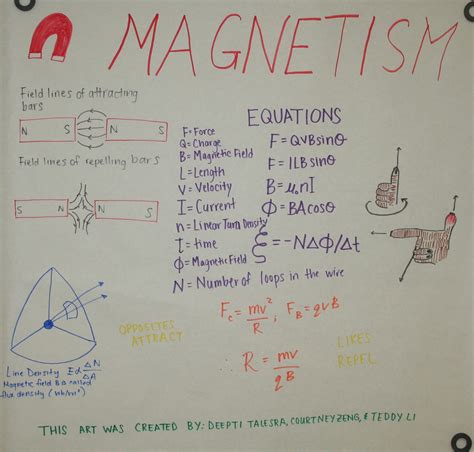 MAGNETISM
Field lines of attracting
bars
N S N S
Field lines of repelling bars
S N N S
EQUATIONS
F=Force
Q=Charge
B=Magnetic Field
L=Length
V=Velocity
I=Current
n=Linear Turn Density
t=time
Φ=Magnetic Field
N=Number of loops in the wire
F=QVBsinθ
F=ILBsinθ
B=μ₀nI
Φ=BAcosθ
ξ=-NΔΦ/Δt
Fc=mv²/R, FB=qvB
∴ R=mv/qB
OPPOSITES
ATTRACT
LIKES
REPEL
Line Density Eα ΔN/ΔA
Magnetic field B
flux density (Wb/m²)
THIS ART WAS CREATED BY: DEEPTI TALESRA, COURTNEY ZENG, & TEDDY LI